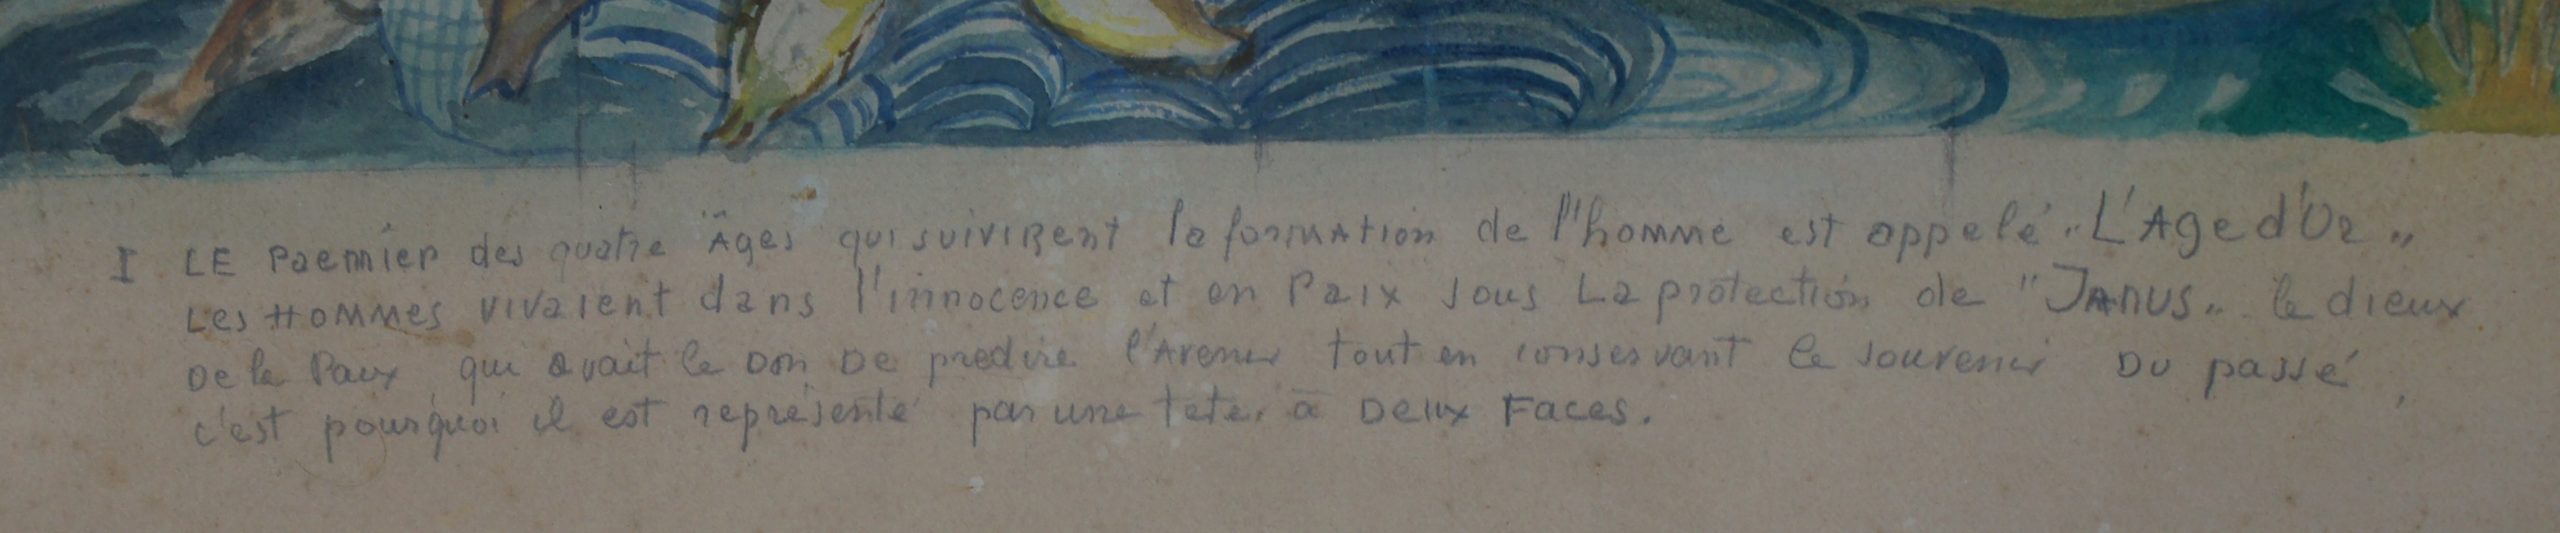 I LE Premier des quatre Âges qui suivirent la formation de l'homme est appelé "L'Age d'Or"
Les Hommes vivaient dans l'innocence et en Paix sous La protection de "Janus" le dieux
De la Paix qui avait le Don De predire l'Avenir tout en conservant le souvenir Du passé,
c'est pourquoi il est représenté par une tete à Deux Faces.